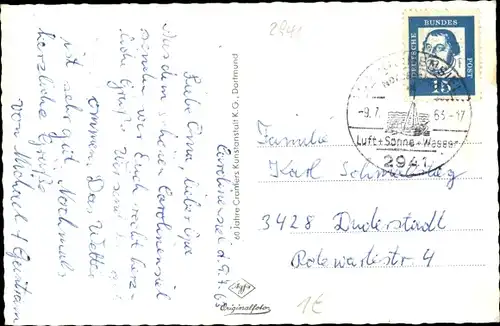 Carolinensiel d. 9.7.63
Liebe Oma, lieber Opa
Aus dem schönen Carolinensiel
senden wir Euch recht herz-
liche Grüße. Wir sind gut
ommen. Das Wetter
ist sehr gut. Nochmals
herzliche Grüße
von Michael
60 Jahre Cramers Kunstanstalt K.G., Dortmund
Agfa
Originalfoto
2941
DEUTSCHE
BUNDES
POST
15
-9.7. 63-17
Luft + Sonne + Wasser
2941
Familie
Karl
3428 Duderstadt
Rotewartestr. 4
1€